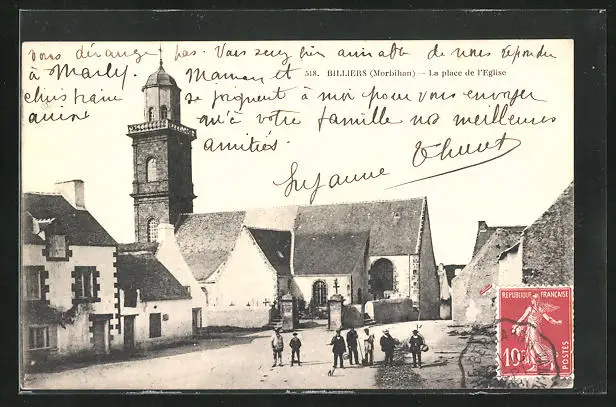 vous dérange pas. Vous serez bien aimable de nous répondre
à Marly. Maman et
518. BILLIERS (Morbihan) — La place de l'Eglise
Christiane se joignent à moi pour vous envoyer
ainsi qu'à votre famille nos meilleures
amitiés.
Suzanne Thuret
REPUBLIQUE FRANÇAISE
10c POSTES